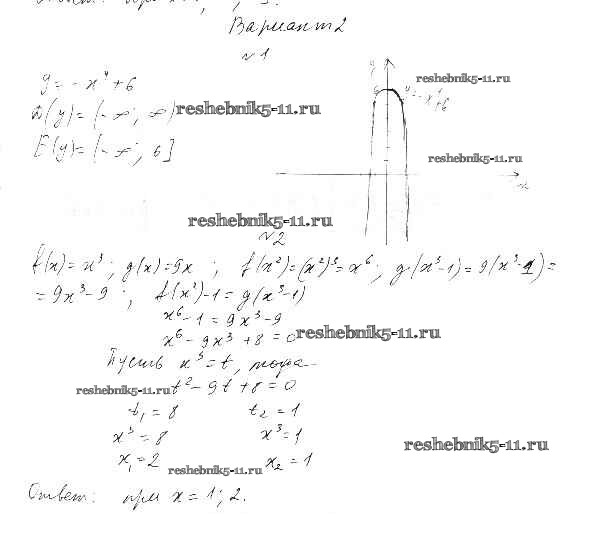 Вариант 2
№1
y = -x⁴ + 6
D(y) = (-∞; ∞)
E(y) = (-∞; 6]
y
6
y = -x⁴+6
x
reshebnik5-11.ru
reshebnik5-11.ru
reshebnik5-11.ru
reshebnik5-11.ru
№2
f(x) = x³; g(x) = 9x ; f(x²) = (x²)³ = x⁶; g(x³-1) = 9(x³-1) =
= 9x³-9 ; f(x²)-1 = g(x³-1)
x⁶-1 = 9x³-9
x⁶ - 9x³ + 8 = 0
reshebnik5-11.ru
Пусть x³ = t, тогда
reshebnik5-11.ru
t² - 9t + 8 = 0
t₁ = 8 t₂ = 1
x³ = 8 x³ = 1
reshebnik5-11.ru
x₁ = 2 x₂ = 1
reshebnik5-11.ru
Ответ: при x = 1; 2.